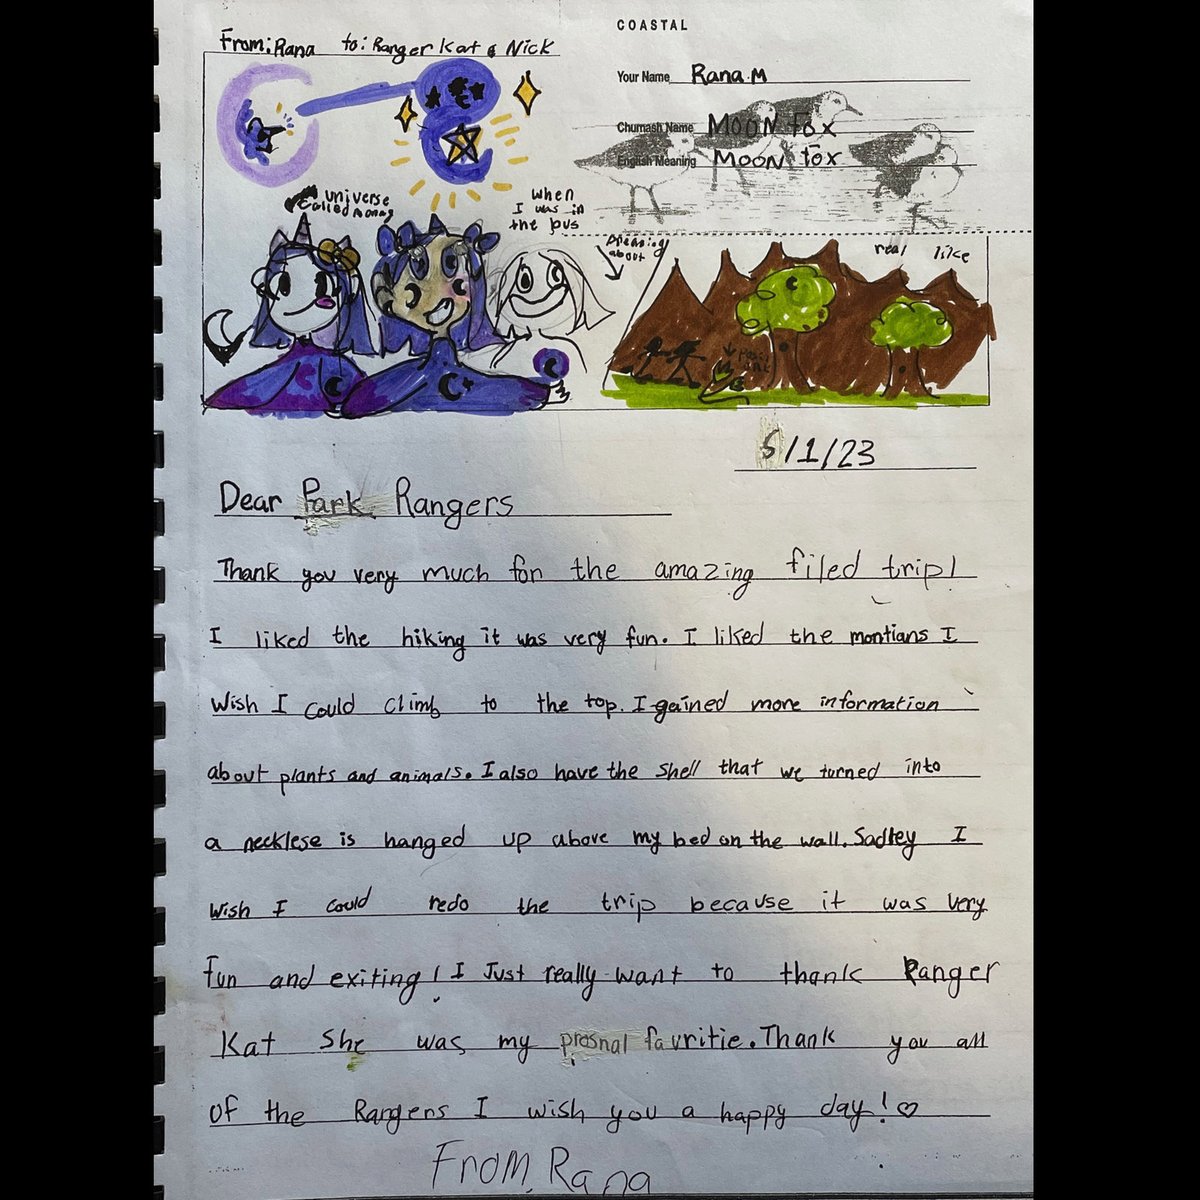 COASTAL
From: Rana to: Ranger Kat & Nick
Your Name Rana.M
Chumash Name MOON fox
English Meaning MOON fox
universe
called
when
I was in
the bus
Dreaming
about
real like
5/1/23
Dear Park Rangers
Thank you very much for the amazing filed trip!
I liked the hiking it was very fun. I liked the montians I
wish I could climb to the top. I gained more information
about plants and animals. I also have the shell that we turned into
a necklese is hanged up above my bed on the wall. Sadley I
wish I could redo the trip because it was very
fun and exiting! I Just really want to thank Ranger
Kat She was my prosnal favritie. Thank you all
of the Rangers I wish you a happy day! ♡
From, Rana